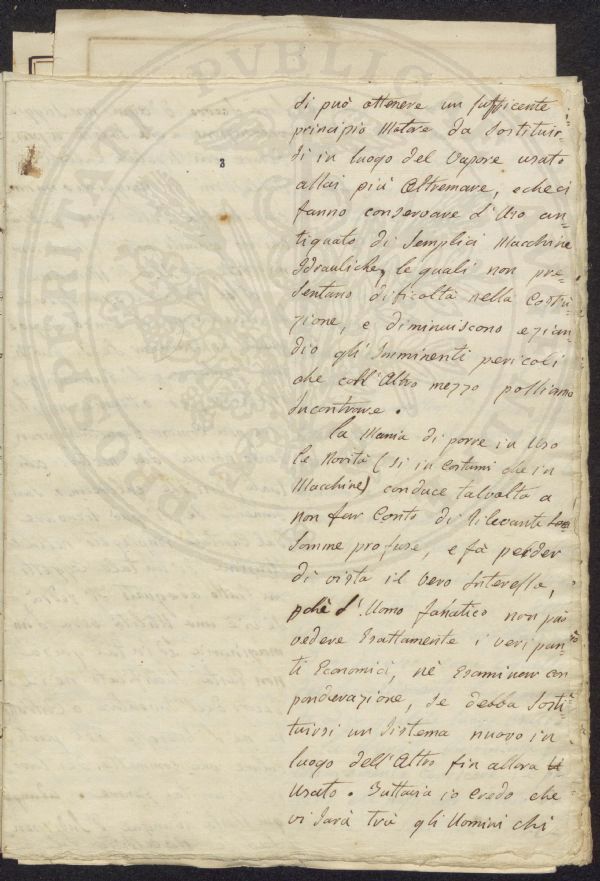 3
si può ottenere un sufficente
principio Motore da sostituir-
si in luogo del Vapore usato
assai più Oltremare, e che ci
fanno conservare l'Uso an-
tiquato di semplici Macchine
Idrauliche, le quali non pre-
sentano dificoltà nella Costru-
zione, e diminuiscono ezian-
dio gli Imminenti pericoli
che coll'Altro mezzo possiamo
Incontrare.
La Mania di porre in Uso
le Novità (sì in Costumi che in
Macchine) conduce talvolta a
non far Conto di Rilevante
somme profuse, e fà perder
di vista il vero Interesse,
pchè l'Uomo fanatico non può
vedere Esattamente i veri pun-
ti Economici, nè Esaminar con
ponderazione, se debba Sosti-
tuirsi un Sistema nuovo in
luogo dell'Altro fin allora
Usato. Tuttavia io Credo che
vi sarà trà gli Uomini chi
PROSPERITATI PVBLICAE